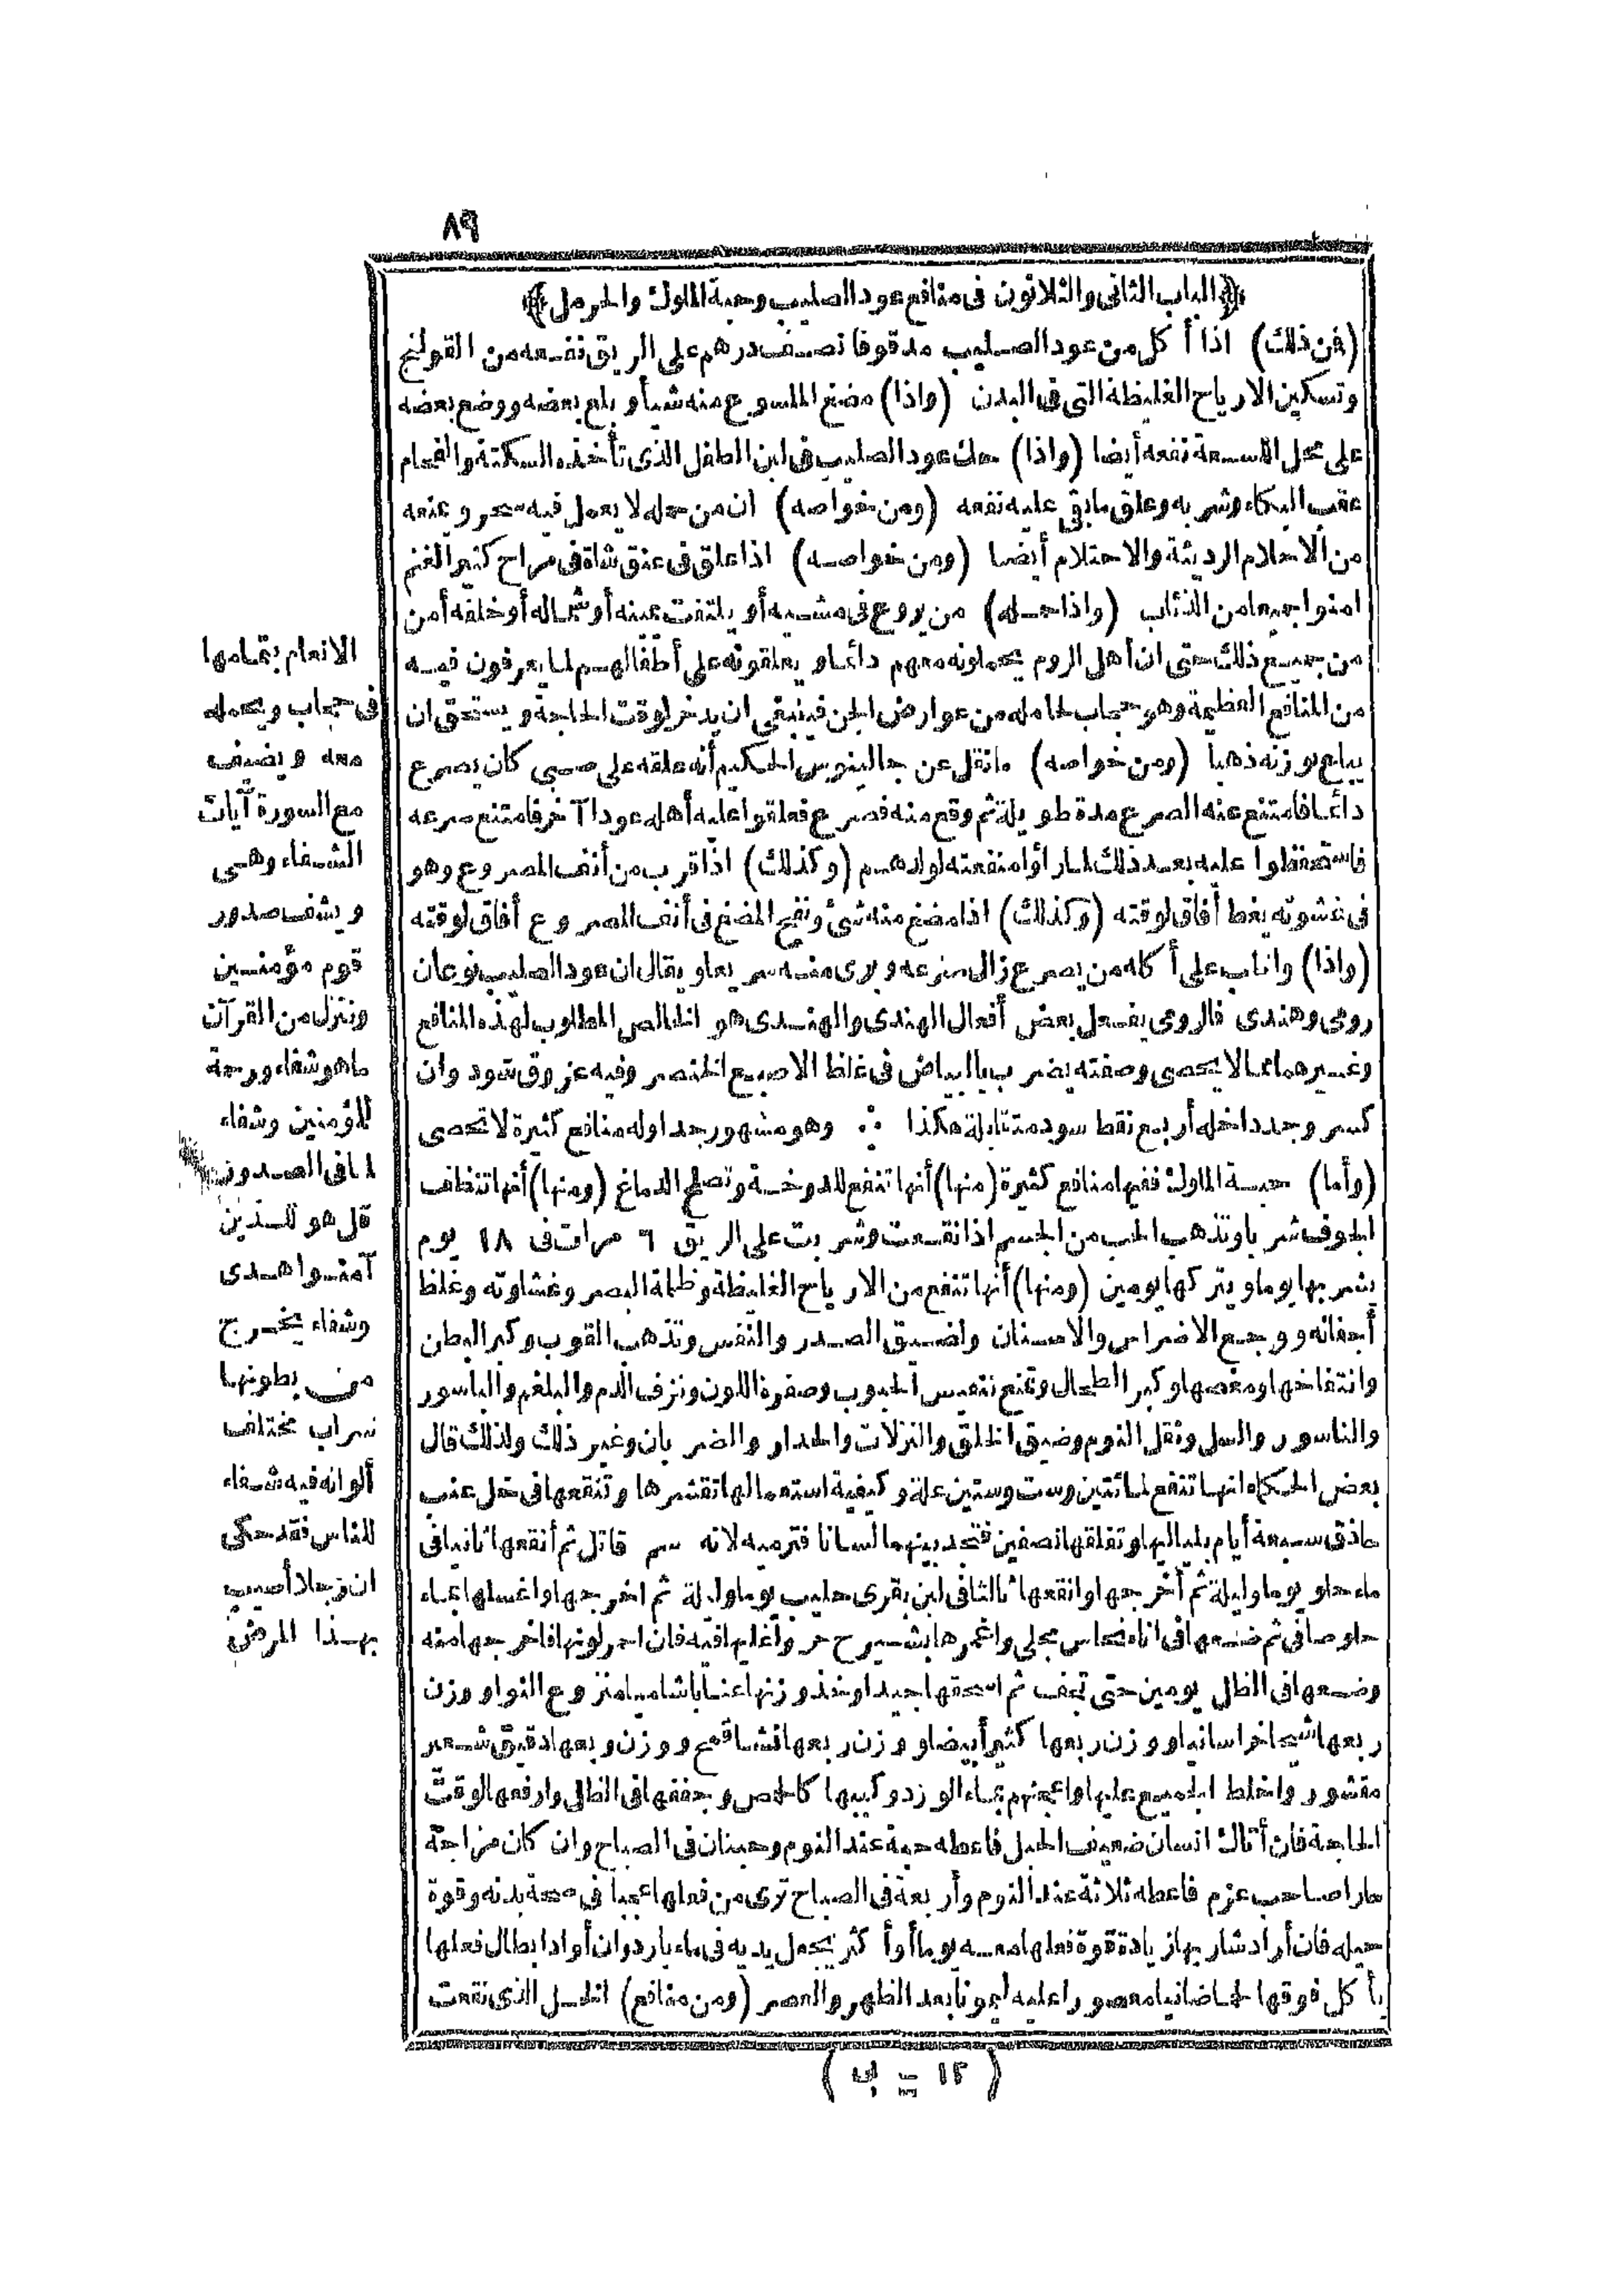 ٨٩
﴿الباب الثاني والثلاثون فى منافع عود الصليب وحبة الملوك والحرمل﴾
(فمن ذلك) اذا أكل من عود الصليب مدقوقا نصف درهم على الريق نفعه من القولنج
وتسكين الارياح الغليظة التى فى البدن (واذا) مضغ الملسوع منه شيأ وبلع بعضه ووضع بعضه
على محل اللسعة نفعه أيضا (واذا) حك عود الصليب فى لبن الطفل الذى تأخذه السكتة والفحام
عقب البكاء وشربه وعلق ما بقى عليه نفعه (ومن خواصه) ان من حمله لا يعمل فيه سحر ويمنعه
من الاحلام الرديئة والاحتلام أيضا (ومن خواصه) اذا علق فى عنق شاة فى مراح كثير الغنم
امنوا جميعا من الذئاب (واذا حمله) من يروع فى مشيه أو يلتفت يمينه أو شماله أو خلفه أمن
من جميع ذلك حتى ان أهل الروم يحملونه معهم دائما ويعلقونه على أطفالهم لما يعرفون فيه
من المنافع العظيمة وهو حجاب لحامله من عوارض الجن فينبغى ان يدخر لوقت الحاجة ويستحق ان
يباع بوزنه ذهبا (ومن خواصه) ما نقل عن جالينوس الحكيم أنه علقه على صبى كان يصرع
دائما فامتنع عنه الصرع مدة طويلة ثم وقع منه فصرع فعلقوا عليه أهله عودا آخر فامتنع صرعه
فاستحفظوا عليه بعد ذلك لما رأوا منفعته لولدهم (وكذلك) اذا قرب من أنف المصروع وهو
فى غشوته يغط أفاق لوقته (وكذلك) اذا مضغ منه شئ ونفخ المضغ فى أنف المصروع أفاق لوقته
(واذا) واناب على أكله من يصرع زال صرعه وبرى منه سريعا ويقال ان عود الصليب نوعان
رومى وهندى فالرومى يفعل بعض أفعال الهندى والهندى هو الخالص المطلوب لهذه المنافع
وغيرهما مما لا يحصى وصفته يضرب باالبياض فى غلظ الاصبع الخنصر وفيه عروق سود وان
كسر وجد داخله أربع نقط سود متقابلة هكذا ⁘ وهو مشهور جدا وله منافع كثيرة لا تحصى
(وأما) حبة الملوك ففيها منافع كثيرة (منها) أنها تنفع للدوخة وتصلح الدماغ (ومنها) أنها تنظف
الجوف شربا وتذهب الحب من الجسم اذا نقعت وشربت على الريق ٦ مرات فى ١٨ يوم
يشربها يوما ويتركها يومين (ومنها) أنها تنفع من الارياح الغليظة وظلمة البصر وغشاوته وغلظ
أجفانه ووجع الاضراس والاسنان ولضيق الصدر والنفس وتذهب القوب وكبر البطن
وانتفاخها ومغصها وكبر الطحال وتمنع نتعيس الحبوب وصفرة اللون ونزف الدم والبلغم والباسور
والناسور والسل وثقل النوم وضيق الخلق والنزلات والحدار والضربان وغير ذلك ولذلك قال
بعض الحكماء انها تنفع لمائتين وست وستين علة وكيفية استعمالها تقشرها وتنقعها فى خل عنب
حاذق سبعة أيام بلياليها وتفلقها نصفين فتجد بينهما لسانا فترميه لانه سم قاتل ثم أنقعها ثانيا فى
ماء حلو يوما وليلة ثم أخرجها وانقعها ثالثا فى لبن بقرى حليب يوما وليلة ثم اخرجها واغسلها بماء
حلو صافى ثم ضعها فى اناء نحاس مجلى واغمرها بشيرج حر واغليها فيه فان احمر لونها فاخرجها منه
وضعها فى الظل يومين حتى تجف ثم اسحقها جيدا وخذ وزنها عنابا شاميا منزوع النوا ووزن
ربعها شيحا خراسانيا ووزن ربعها كثير أبيضا ووزن ربعها نشا قمح ووزن وبعها دقيق شعير
مقشور واخلط الجميع عليها واعجنهم بماء الورد وكببها كالحمص وجففها فى الظل وارفعها لوقت
الحاجة فان أتاك انسان ضعيف الحيل فاعطه حبة عند النوم وحبتان فى الصباح وان كان مزاجه
حارا صاحب عزم فاعطه ثلاثة عند النوم وأربعة فى الصباح ترى من فعلها عجبا فى صحة بدنه وقوة
حيله فان أراد شاربها زيادة قوة فعلها معه يوما أو أكثر يجعل يديه فى ماء بارد وان أراد ابطال فعلها
يأكل فوقها لحما ضانيا معصورا عليه ليمونا بعد الظهر والعصر (ومن منافع) الخل الذى نقعت
الانعام بتمامها
فى حجاب ويحمله
معه ويضيف
مع السورة آيات
الشفاء وهى
ويشف صدور
قوم مؤمنين
وننزل من القرآن
ما هو شفاء ورحمة
للمؤمنين وشفاء
لما فى الصدور
قل هو للذين
آمنوا هدى
وشفاء يخرج
من بطونها
شراب مختلف
ألوانه فيه شفاء
للناس فقد حكى
ان رجلا أصيب
بهذا المرض
(١٢ - ب)